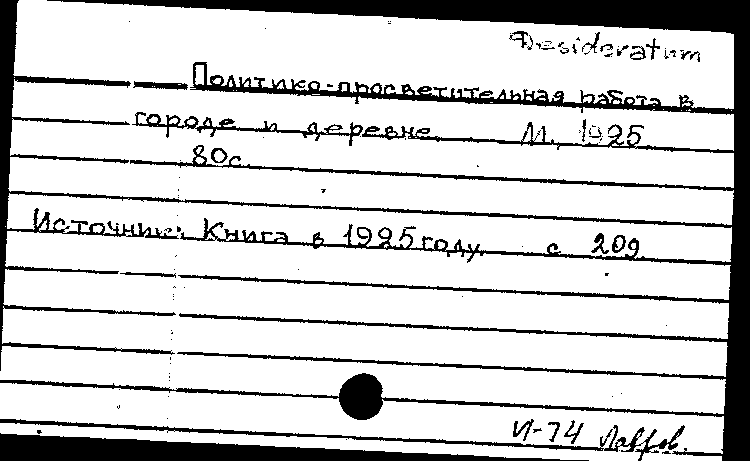 Desideratum
Политико-просветительная работа в
городе и деревне. М., 1925.
80с.
Источник: Книга в 1925 году. с 209.
И-74 Лавров.